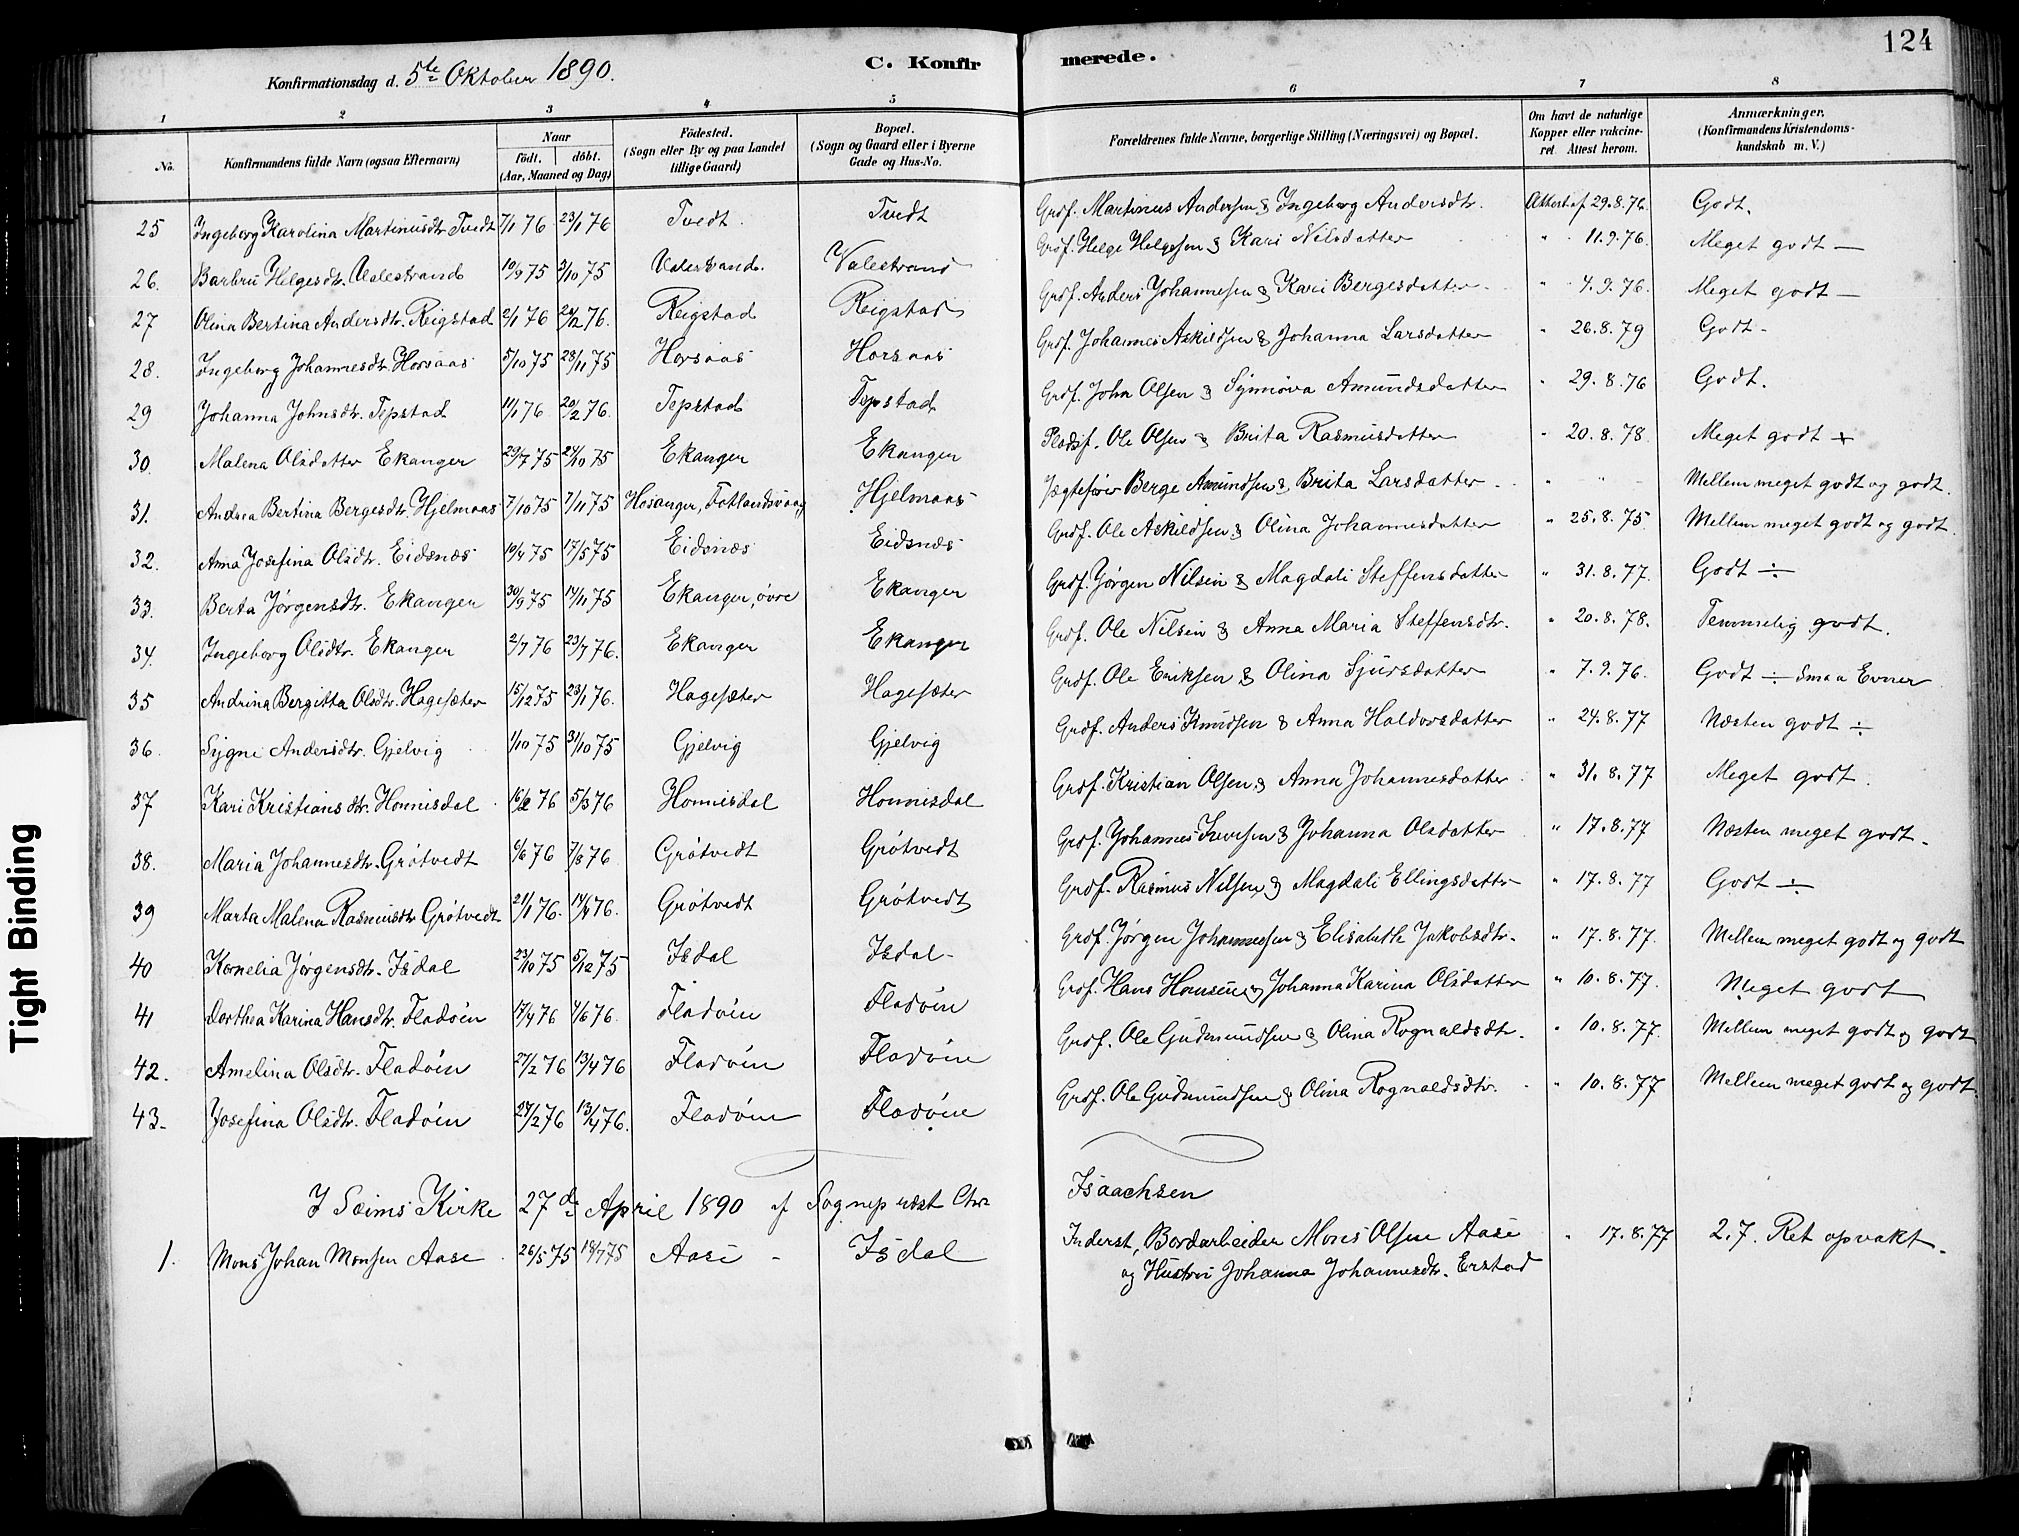 124
Konfirmationsdag d. 5te Oktober 1890. C. Konfirmerede.
1 2 3 4 5 6 7 8
No. Konfirmandens fulde Navn (ogsaa Efternavn) Naar født. døbt. (Aar, Maaned og Dag) Födested. (Sogn eller By og paa Landet tillige Gaard) Bopæl. (Sogn og Gaard eller i Byerne Gade og Hus-No. Forældrenes fulde Navne, borgerlige Stilling (Næringsvei) og Bopæl. Om havt de naturlige Kopper eller vaccineret. Attest herom. Anmærkninger. (Konfirmandens Kristendomskundskab m. V.)
25 Ingeborg Karolina Martinusdtr. Tvedt 7/1 76 23/1 76 Tvedt. Tvedt Grdf. Martinus Andersen & Ingeborg Andersdtr. Attest af 29.8.76. Godt.
26. Barbru Helgesdtr. Valestrand 10/9 75 3/10 75 Valestrand. Valestrand Grdf. Helge Helgesen & Kari Nilsdatter " 11.9.76. Meget godt —
27 Olina Bertina Andersdtr. Reigstad 2/1 76 20/2 76. Reigstad Reigstad Grdf. Anders Johannesen & Kari Bergesdatter " 4.9.76. Meget godt —
28. Ingeborg Johannesdtr. Horsaas 5/10 75 28/11 75 Horsaas Horsaas Grdf. Johannes Askildsen & Johanna Larsdatter " 26.8.79 Godt.
29 Johanna Johnsdtr. Tepstad 11/1 76 20/2 76. Tepstad Tepstad Grdf. John Olsen & Synnöva Amundsdatter " 29.8.76 Godt.
30. Malena Olsdatter Ekanger 29/7 75 24/10 75 Ekanger Ekanger Pladsf. Ole Olsen & Brita Rasmusdatter " 20.8.78. Meget godt +
31. Andrea Bertina Bergesdtr. Hjelmaas 7/10 75 7/11 75 Hosanger, Fotlandsvaag Hjelmaas Jægtefører Berge Amundsen & Brita Larsdatter " " Mellem meget godt og godt.
32. Anna Josefina Olsdtr. Eidsnæs 19/4 75 17/5 75 Eidsnæs Eidsnæs Grdf. Ole Askildsen & Olina Johannesdatter " 25.8.75. Mellem meget godt og godt.
33. Berta Jørgensdtr. Ekanger 30/9 75 14/11 75 Ekanger, övre Ekanger Grdf. Jørgen Nilsen & Magdali Steffensdatter " 31.8.77. Godt ÷
34. Ingeborg Olsdtr. Ekanger 2/7 76 23/7 76. Ekanger Ekanger Grdf. Ole Nilsen & Anna Maria Steffensdtr. " 20.8.78. Temmelig godt.
35 Andrina Bergitta Olsdtr. Hagesæter 15/12 75 23/1 76. Hagesæter Hagesæter Grdf. Ole Eriksen & Olina Sjursdatter " 7.9.76. Godt ÷ Smaa Evner
36. Sygni Andersdtr. Gjelvig 1/10 75 31/10 75 Gjelvig Gjelvig Grdf. Anders Knudsen & Anna Haldorsdatter " 24.8.77 Næsten godt ÷
37 Kari Kristiansdtr. Honnisdal 16/2 76 5/3 76 Honnisdal Honnisdal Grdf. Kristian Olsen & Anna Johannesdatter " 31.8.77 Meget godt.
38. Maria Johannesdtr. Grötvedt 6/6 76 7/8 76. Grötvedt Grötvedt Grdf. Johannes Iversen & Johanna Olsdatter " 17.8.77 Næsten meget godt.
39 Marta Malena Rasmusdtr. Grötvedt 21/1 76. 14/4 76. Grötvedt Grötvedt Grdf. Rasmus Nilsen & Magdali Ellingsdatter " 17.8.77 Godt ÷
40 Kornelia Jörgensdtr. Isdal 23/10 75 5/12 75 Isdal Isdal Grdf. Jörgen Johannesen & Elisabeth Jakobsdtr. " 17.8.77. Mellem meget godt og godt
41 Dorthea Karina Hansdtr. Fladöin 17/4 76 4/6 76. Fladöin Fladöin Grdf. Hans Hansen & Johanna Karina Olsdatter " 10.8.77. Meget godt
42. Amelina Olsdtr. Fladöin 27/2 76 13/4 76 Fladöin Fladöin Grdf. Ole Gudmundsen & Olina Rognaldsdtr. " 10.8.77. Mellem meget godt og godt
43. Josefina Olsdtr. Fladöin 27/2 76 13/4 76. Fladöin Fladöin Grdf. Ole Gudmundsen & Olina Rognaldsdtr. " 10.8.77 Mellem meget godt og godt.
I Seims Kirke 27de April 1890 af Sognepræst Chr. Isaachsen
1. Mons Johan Monsen Aase 26/5 75 18/7 75 Aase Isdal Inderst, Bordarbeider Mons Olsen Aase " 17.8.77 2.7. Ret opvakt.
og Hustru Johanna Johannesdtr. Erstad
Tight Binding